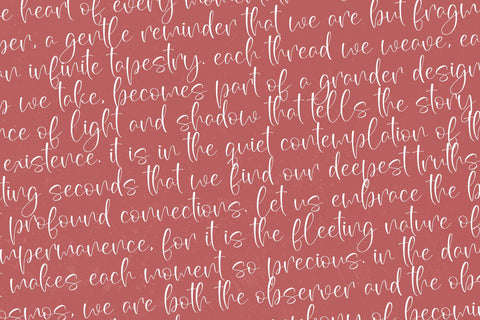 heart of every moment that we are but fragm
per, a gentle reminder that we are but fragm
an infinite tapestry. each thread we weave, ea
we take, becomes part of a grander design
nce of light and shadow that tells the story
existence. it is in the quiet contemplation of th
ting seconds that we find our deepest truths
profound connections. let us embrace the b
impermanence, for it is the fleeting nature of
t makes each moment so precious. in the dan
osmos, we are both the observer and the obs
of becomin